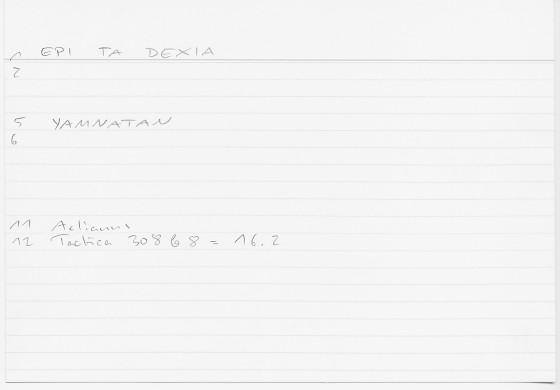 1 EPI TA DEXIA
2
5 YAMNATAN
6
11 Aelianus
12 Tactica 308 b 8 = 16.2